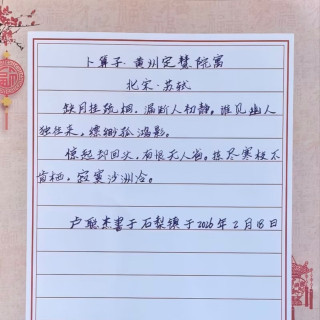 卜算子·黄州定慧院寓
北宋·苏轼
缺月挂疏桐，漏断人初静。谁见幽人
独往来，缥缈孤鸿影。
惊起却回头，有恨无人省。拣尽寒枝不
肯栖，寂寞沙洲冷。
卢聪杰书于石梨镇于2026年2月18日